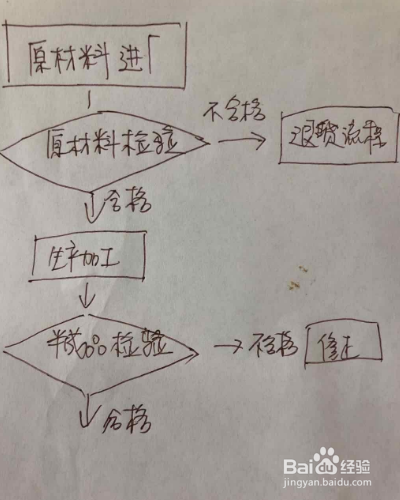 原材料进厂
不合格
原材料检验
退货流程
合格
生产加工
半成品检验
不合格
修正
合格
Baidu经验
jingyan.baidu.com